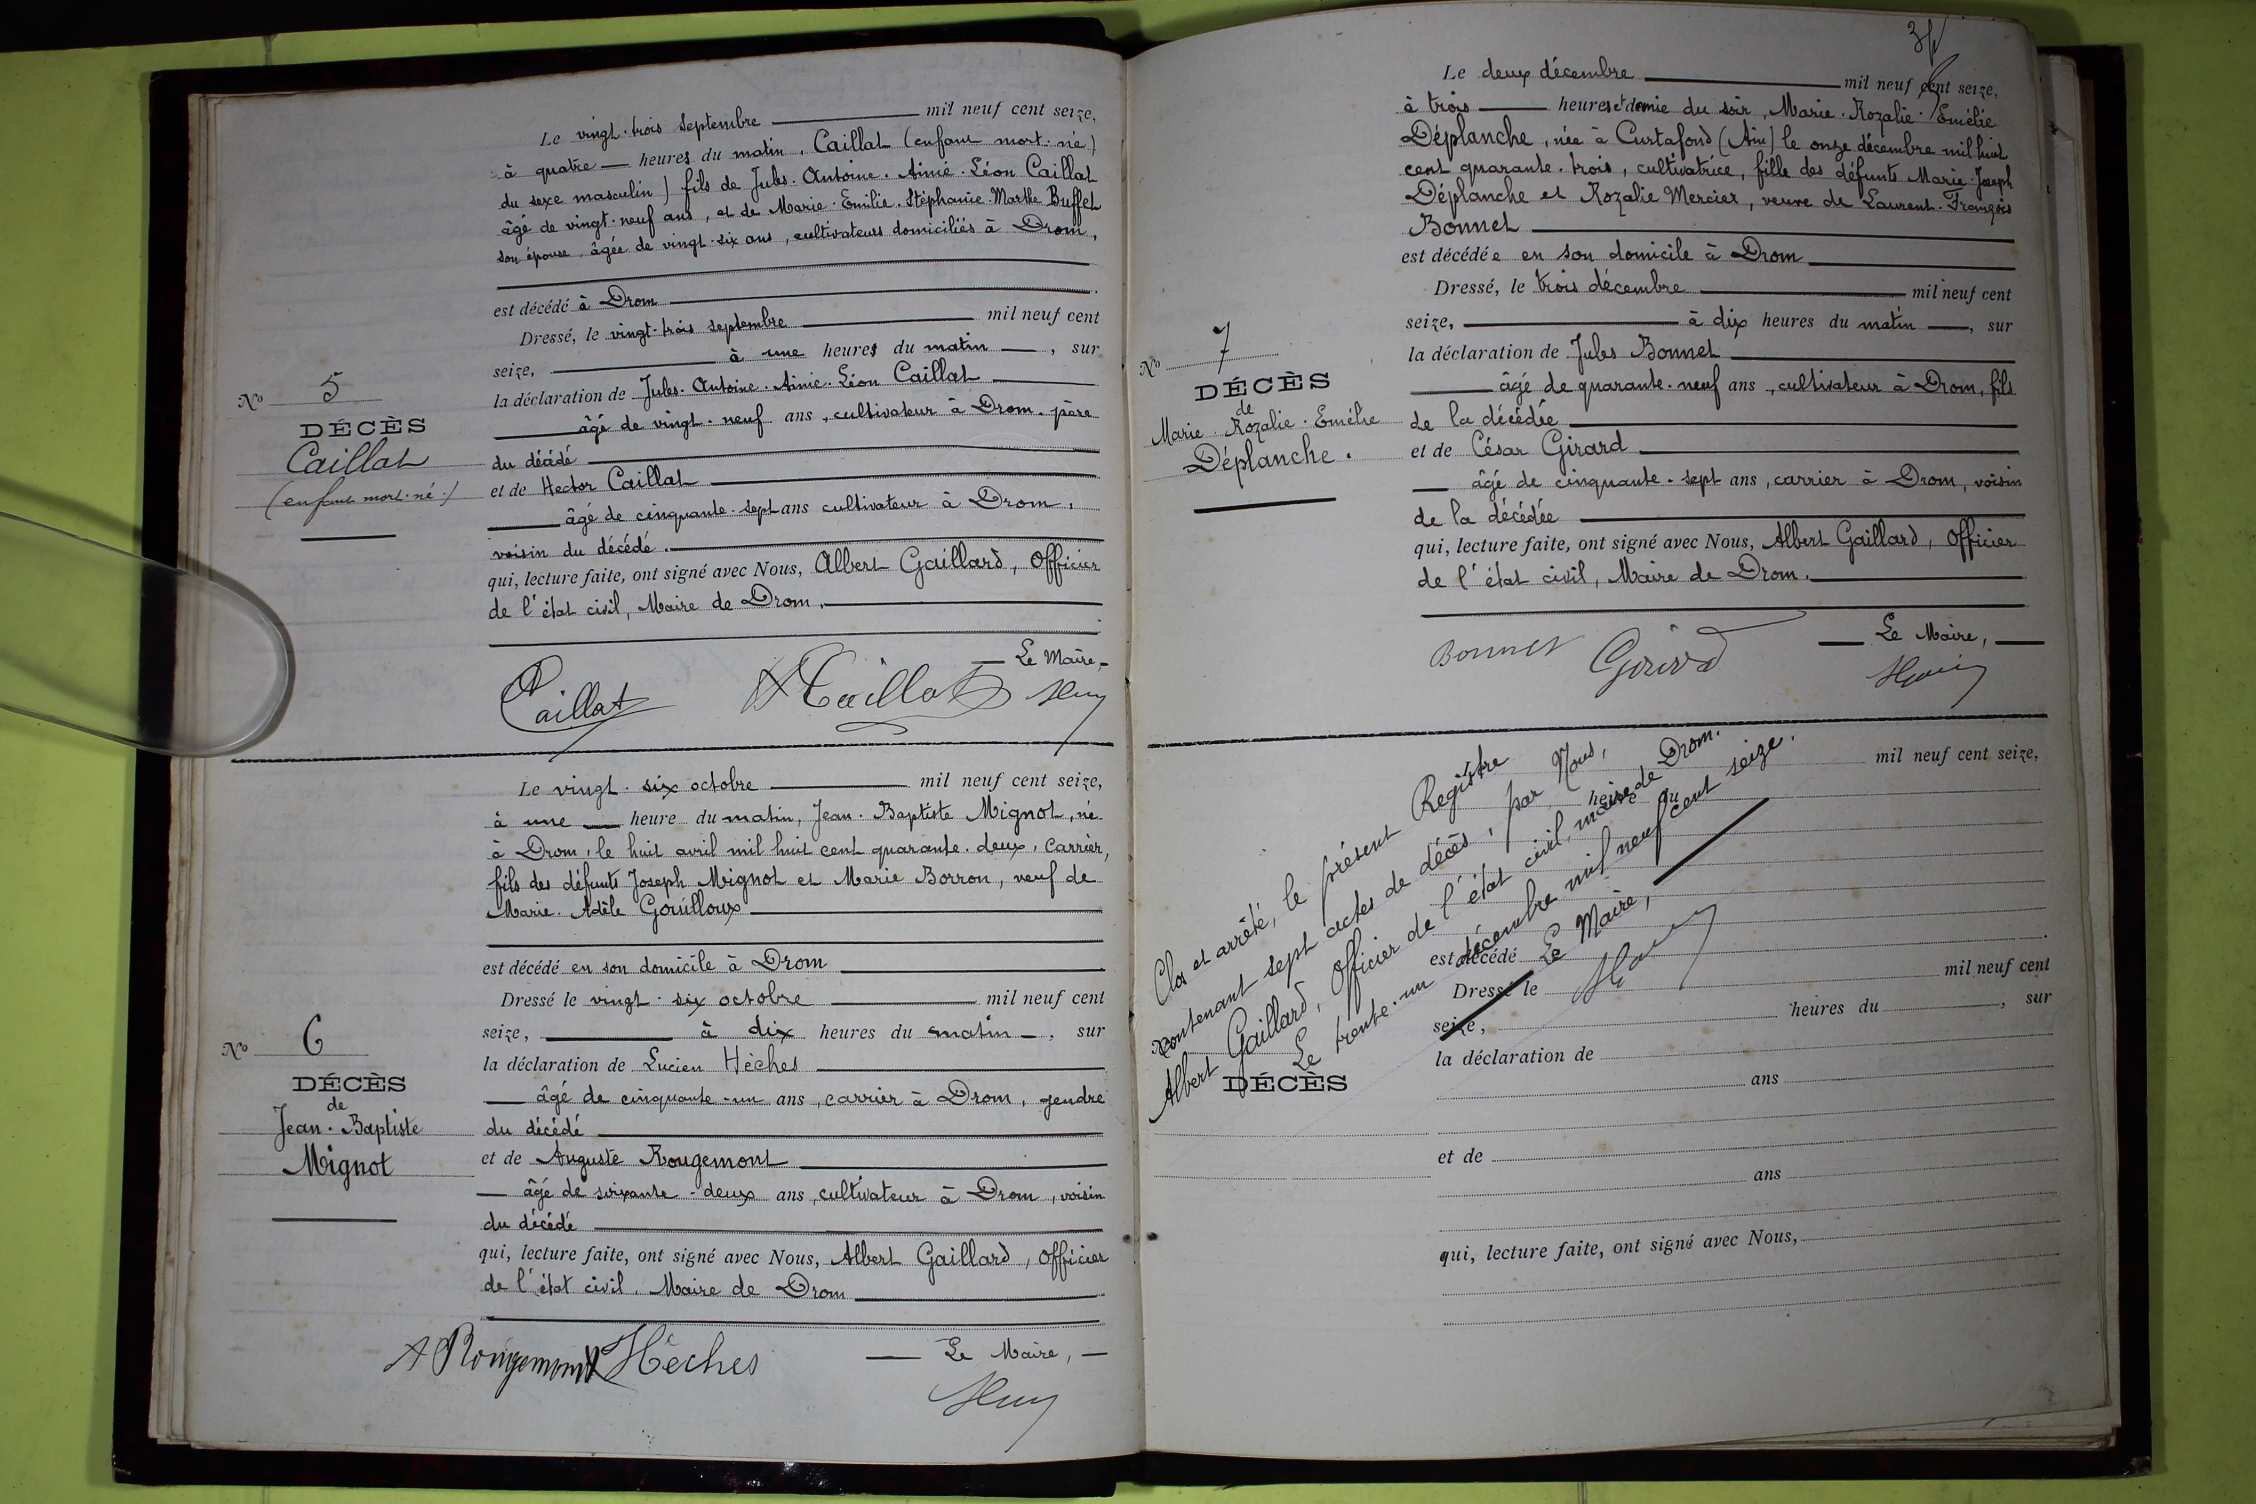 Le vingt-trois Septembre mil neuf cent seize,
à quatre heures du matin, Caillat (enfant mort-né)
du sexe masculin) fils de Jules. Antoine. Aimé. Léon Caillat
âgé de vingt-neuf ans, et de Marie. Emilie. Stéphanie. Marthe Buffet
son épouse, âgée de vingt-six ans, cultivateurs domiciliés à Drom,
est décédé à Drom
Dressé, le vingt-trois septembre mil neuf cent
seize, à une heures du matin, sur
la déclaration de Jules. Antoine. Aimé. Léon Caillat
âgé de vingt-neuf ans, cultivateur à Drom. père
du décédé
et de Hector Caillat
âgé de cinquante-sept ans cultivateur à Drom,
voisin du décédé.
qui, lecture faite, ont signé avec Nous, Albert Gaillard, Officier
de l'état civil, Maire de Drom.
Le Maire,
Caillat HCaillat
No 5
DÉCÈS
Caillat
(enfant mort-né.)
Le vingt-six octobre mil neuf cent seize,
à une heure du matin, Jean-Baptiste Mignot, né
à Drom, le huit avril mil huit cent quarante-deux, carrier,
fils des défunts Joseph Mignot et Marie Borron, veuf de
Marie. Adèle Gouilloux
est décédé en son domicile à Drom
Dressé le vingt-six octobre mil neuf cent
seize, à dix heures du matin, sur
la déclaration de Lucien Hèches
âgé de cinquante-un ans, carrier à Drom, gendre
du décédé
et de Auguste Rougemont
âgé de soixante-deux ans, cultivateur à Drom, voisin
du décédé
qui, lecture faite, ont signé avec Nous, Albert Gaillard, Officier
de l'état civil. Maire de Drom
Le Maire,
A Rougemont Hèches
No 6
DÉCÈS
de
Jean-Baptiste
Mignot
Le deux décembre mil neuf cent seize,
à trois heures et demie du soir, Marie. Rozalie. Emélie
Déplanche, née à Curtafond (Ain) le onze décembre mil huit
cent quarante-trois, cultivatrice, fille des défunts Marie-Joseph
Déplanche et Rozalie Mercier, veuve de Laurent-François
Bonnet
est décédée en son domicile à Drom
Dressé, le trois décembre mil neuf cent
seize, à dix heures du matin, sur
la déclaration de Jules Bonnet
âgé de quarante-neuf ans, cultivateur à Drom, fils
de la décédée
et de César Girard
âgé de cinquante-sept ans, carrier à Drom, voisin
de la décédée
qui, lecture faite, ont signé avec Nous, Albert Gaillard, Officier
de l'état civil, Maire de Drom.
Le Maire,
Bonnet Girard
No 7
DÉCÈS
de
Marie. Rozalie. Emélie
Déplanche.
Clos et arrêté, le présent Registre
contenant sept actes de décès, par Nous,
Albert Gaillard, Officier de l'état civil, maire de Drom.
Le trente-un décembre mil neuf cent seize.
Le Maire,
mil neuf cent seize,
heure du
est décédé
Dressé le mil neuf cent
seize, heures du , sur
la déclaration de
ans
et de
ans
qui, lecture faite, ont signé avec Nous,
DÉCÈS